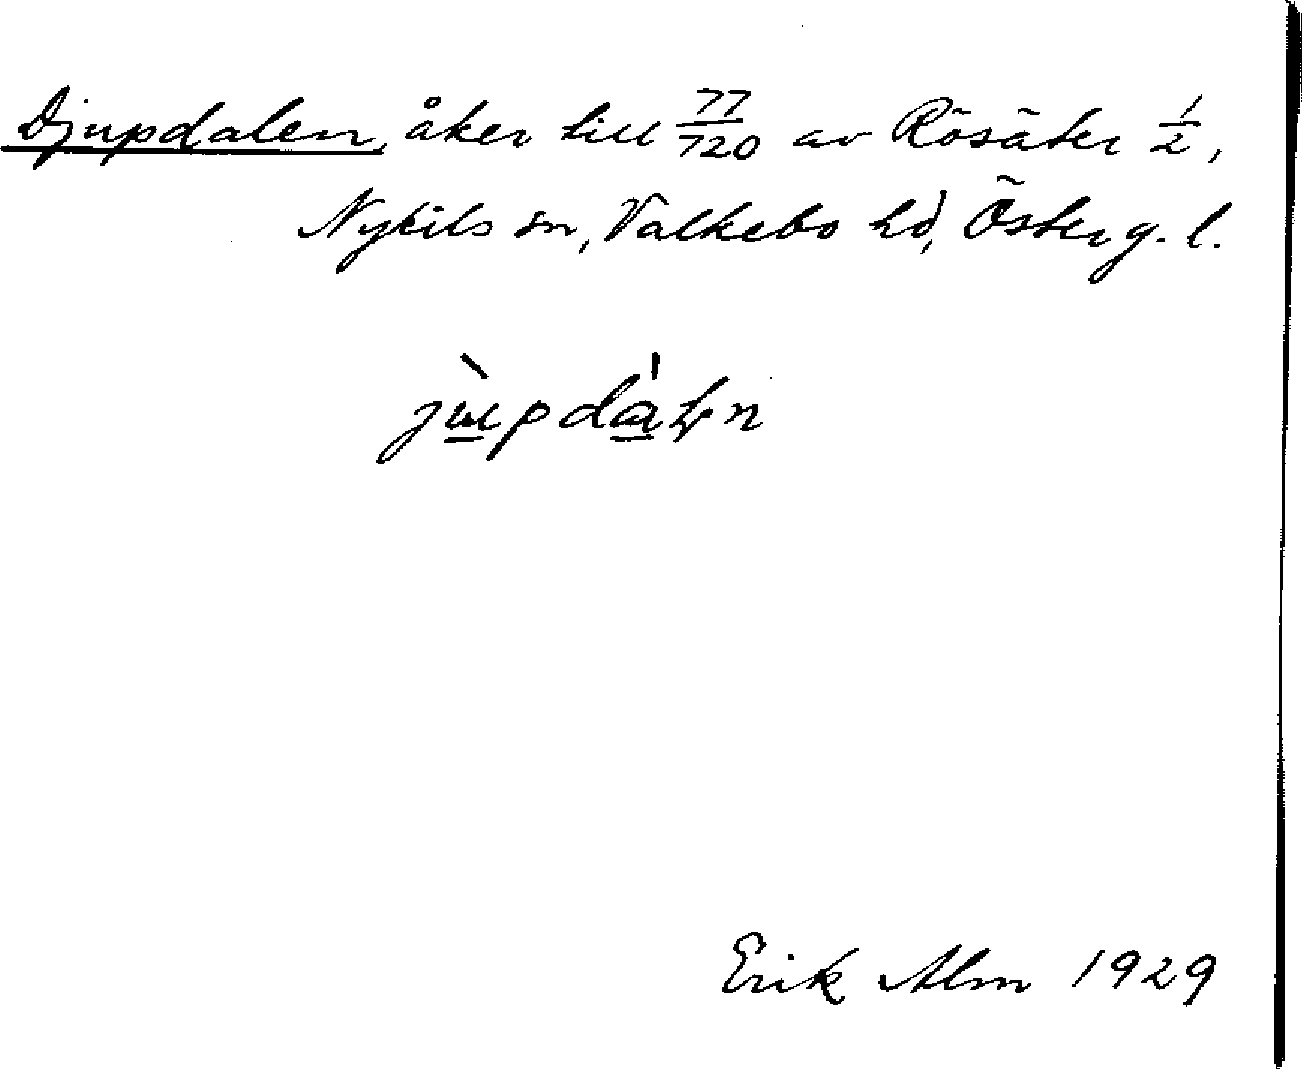 Djupdalen, åker till 77/720 av Rösäter 1/2,
Nykils sn, Valkebo hd, Österg. l.
Erik Alm 1929